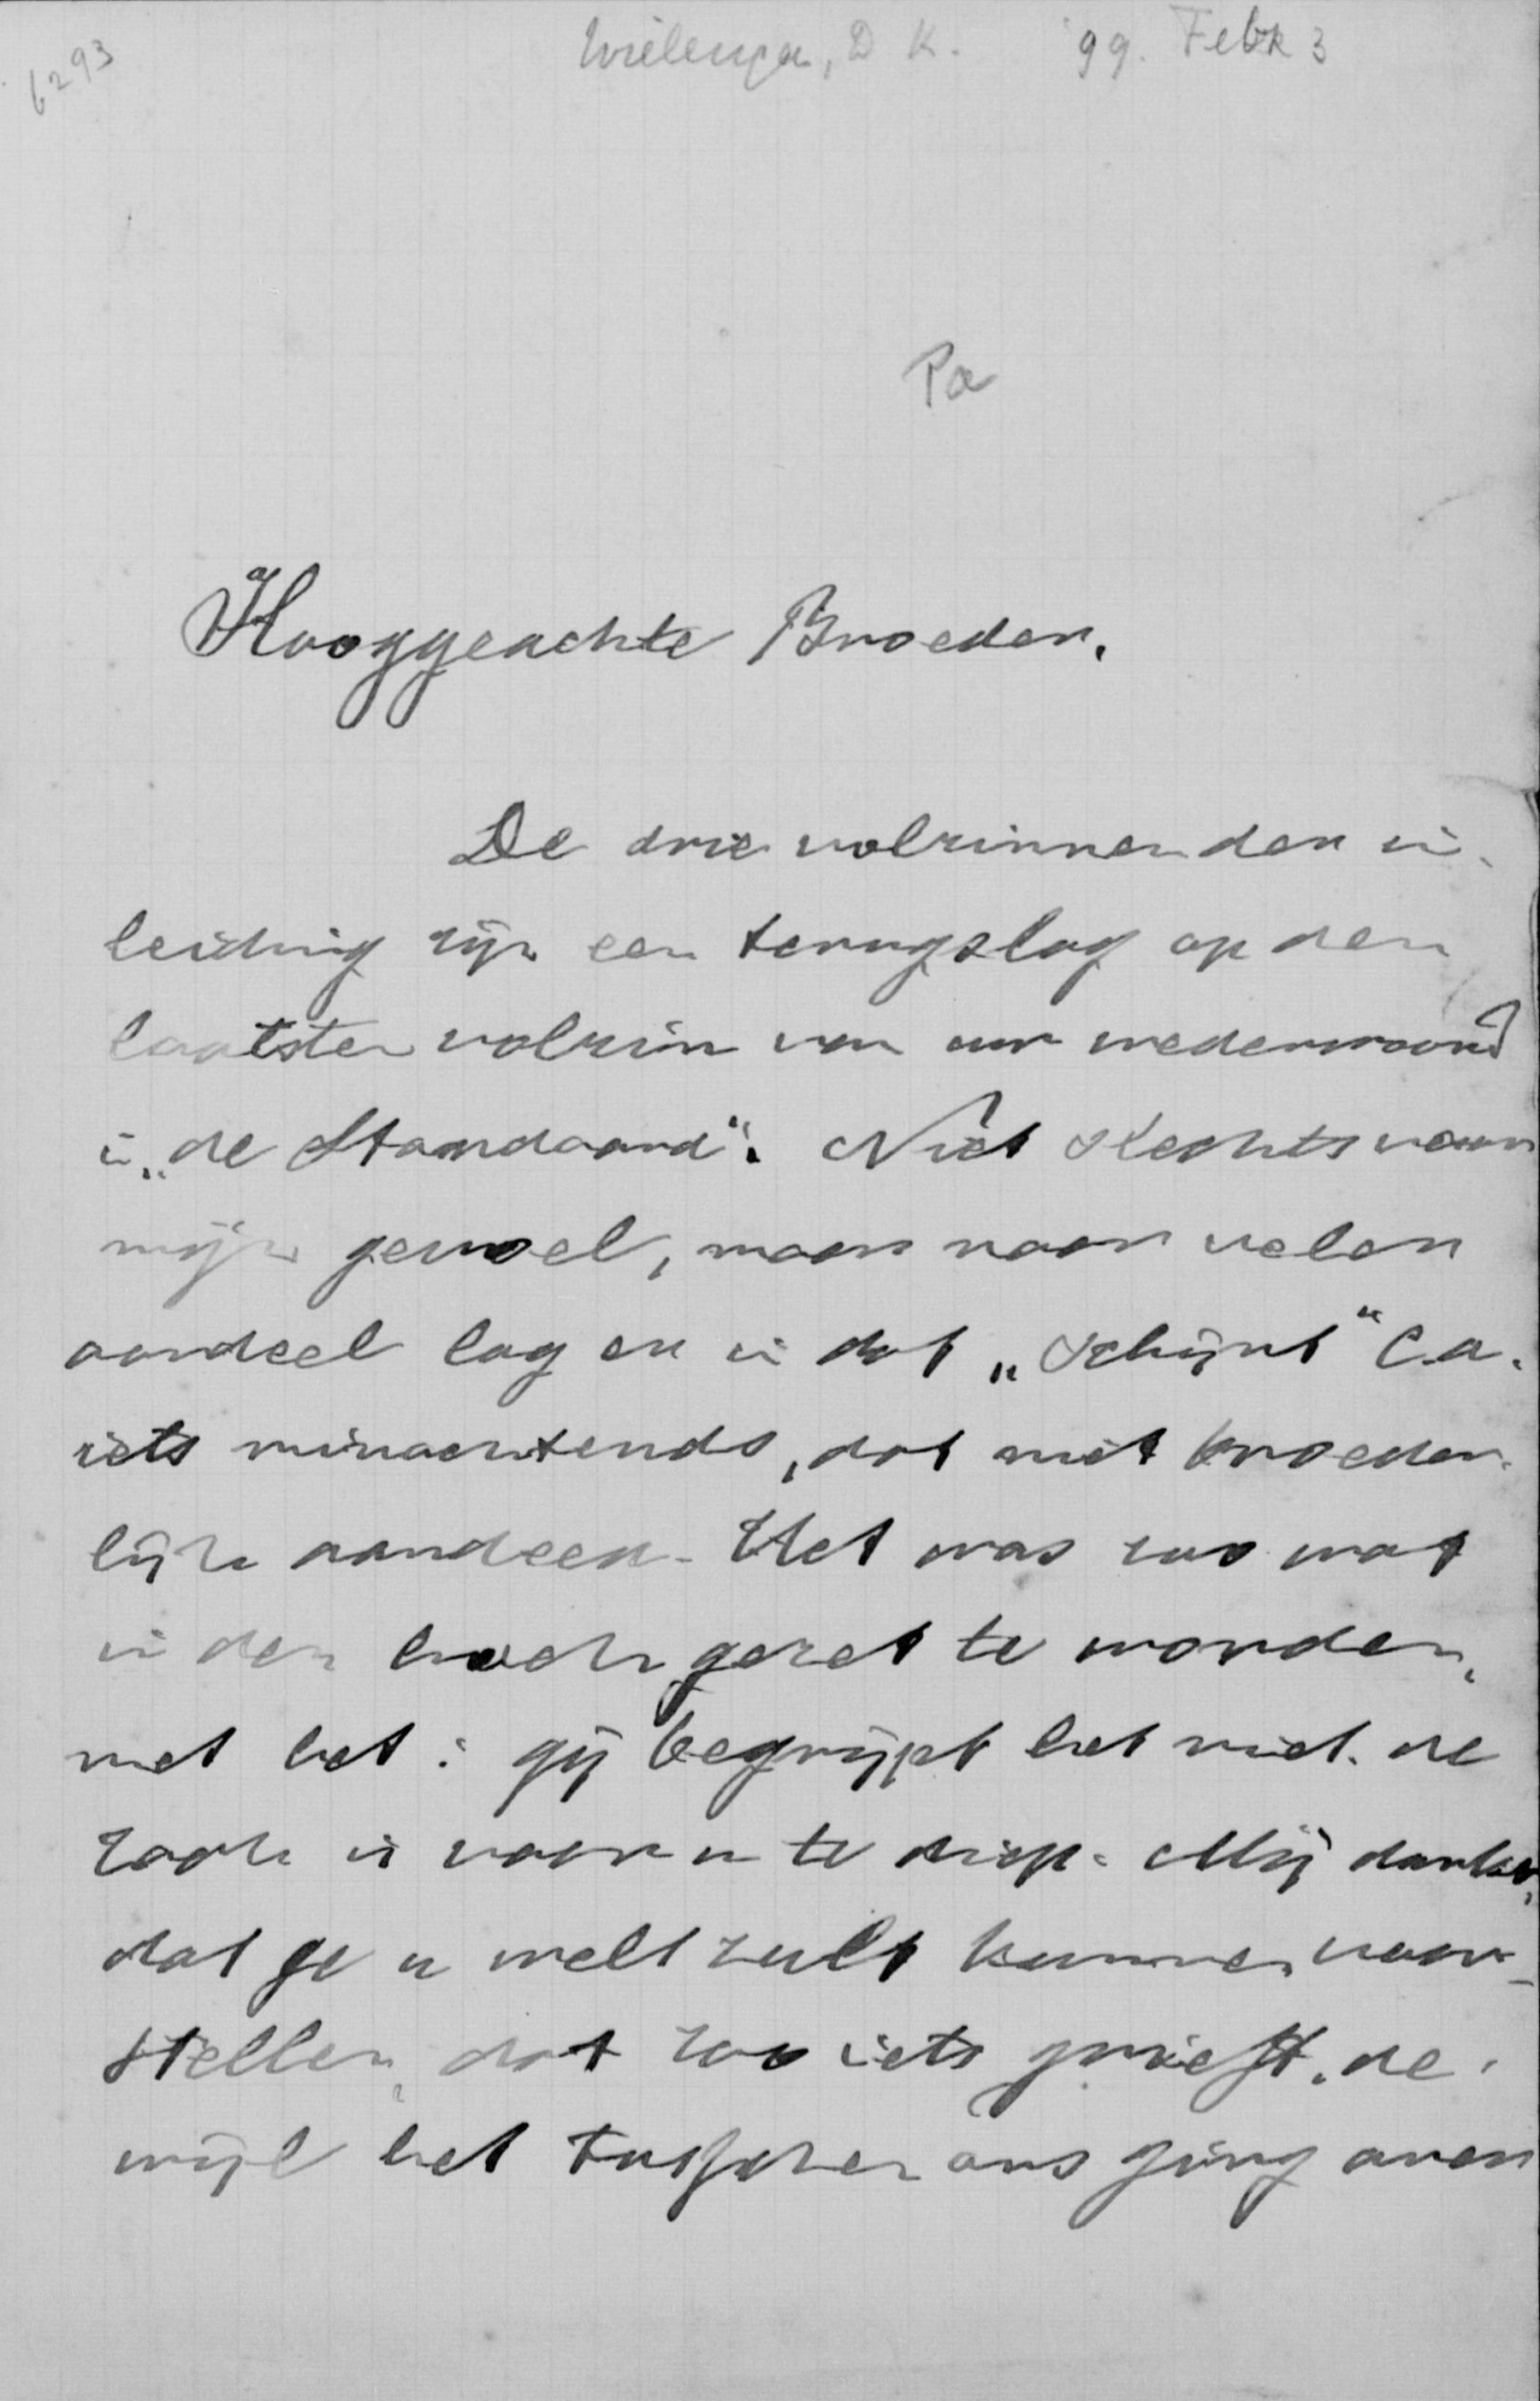 6293
Wielenga, D K. '99. Febr 3
Pa
Hooggeachte Broeder.
De drie volzinnen der in-
leiding zijn een terugslag op den
laatsten volzin van uw wederwoord
in "de Standaard". Niet slechts naar
mijn gevoel, maar naar velen
oordeel lag er in dat "schijnt" e.a.
iets minachtends, dat niet broeder-
lijk aandeed. Het was zoo wat
in den hoek gezet te worden,
met het: gij begrijpt het niet. de
zaak is voor u te diep. Mij dunkt,
dat ge u welt zult kunnen voor-
stellen, dat zoo iets grieft, de-
wijl het tusschen ons ging over